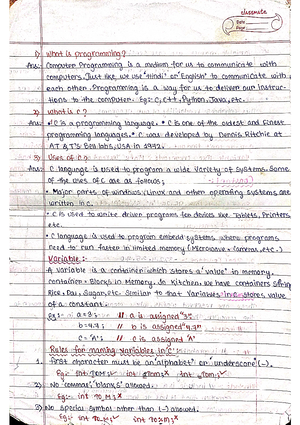 classmate
Date
Page
1) What is programming?
Ans:- Computer Programming is a medium for us to communicate with
computers. Just like we use "Hindi" or "English" to communicate with
each other. Programming is a way for us to deliver our instruc-
tions to the computer. Eg:- C, C++, Python, Java, etc.
2) What is C?
Ans:- • C is a programming language. • C is one of the oldest and finest
programming languages. • C was developed by Dennis Ritchie at
AT & T's Bell labs, USA in 1972.
3) Uses of C?
Ans:- C language is used to program a wide variety of systems. Some
of the uses of C are as follows;
• Major parts of windows, Linux and other operating systems are
written in C.
• C is used to write driver programs for devices like Tablets, Printers
etc.
• C language is used to program embed systems where programs
need to run faster in limited memory (Microwave, Cameras, etc.)
Variable :-
A variable is a container which stores a 'value' in memory.
container = Blocks in Memory. In Kitchen, we have containers
Rice, Dal, Sugar, etc. Similar to that Variables in C stores value
of a constant.
Eg:- a = 3; // a is assigned "3"
b = 4.7; // b is assigned "4.7"
c = 'A'; // c is assigned 'A'
Rules for naming variables in 'C':-
1. first character must be an 'alphabet' or 'underscore' (_).
Eg:- int
2) No commas, 'blanks' allowed.
Eg:- int
3) No special symbol other than (_) allowed.
Eg:- int